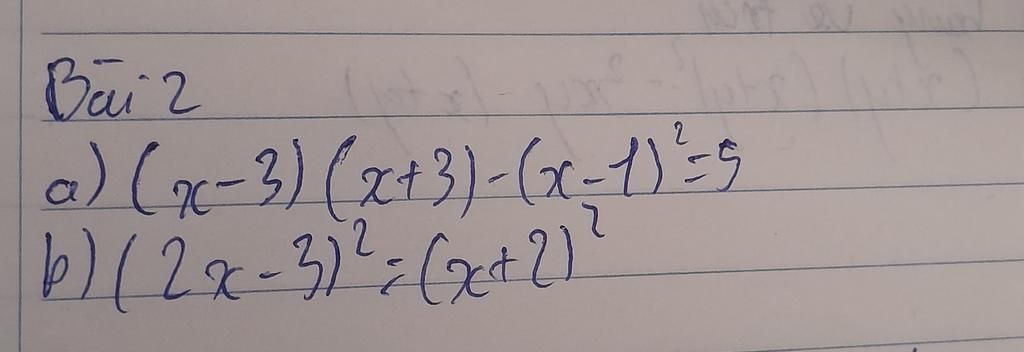 Bài 2
a) (x-3)(x+3)-(x-1)²=5
b) (2x-3)²=(x+2)²